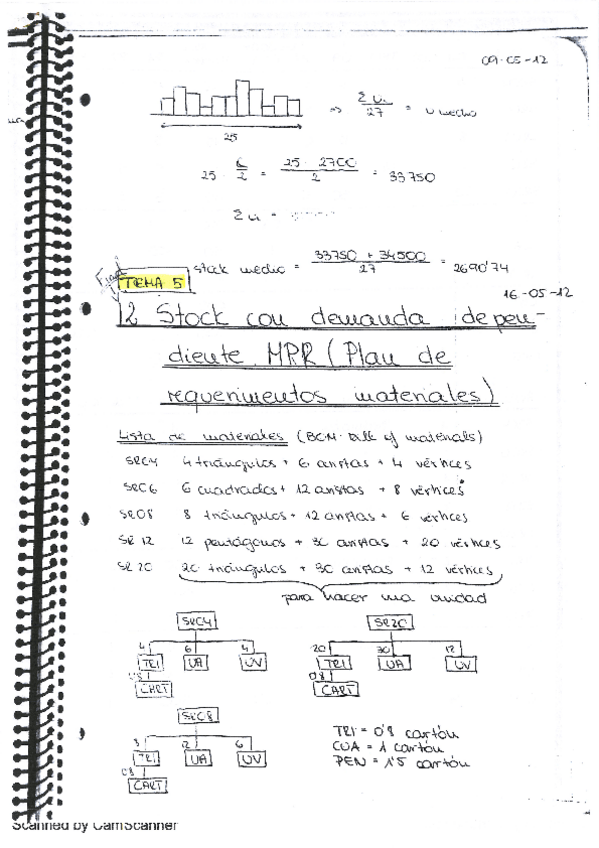 09-05-12
⇒ Σ u. / 27 = u medio
25
25 · / 2 = 25 · 2700 / 2 = 33750
Σ u. =
stock medio = 33750 + 34500 / 27 = 2690'74
TEMA 5
16-05-12
2 Stock con demanda depen-
diente MPR (Plan de
requerimientos materiales)
Lista de materiales (BOM: Bill of materials)
SRC4 4 triángulos + 6 aristas + 4 vértices
SRC6 6 cuadrados + 12 aristas + 8 vértices
SRO8 8 triángulos + 12 aristas + 6 vértices
SR 12 12 pentágonos + 30 aristas + 20 vértices
SR 20 20 triángulos + 30 aristas + 12 vértices
para hacer una unidad
SRC4 SR20
4 6 4 20 30 12
TRI UA UV TRI UA UV
0'8 0'8
CART CART
SRC8
8 12 6
TRI UA UV
0'8
CART
TRI = 0'8 cartón
CUA = 1 cartón
PEN = 1'5 cartón
Scanned by CamScanner